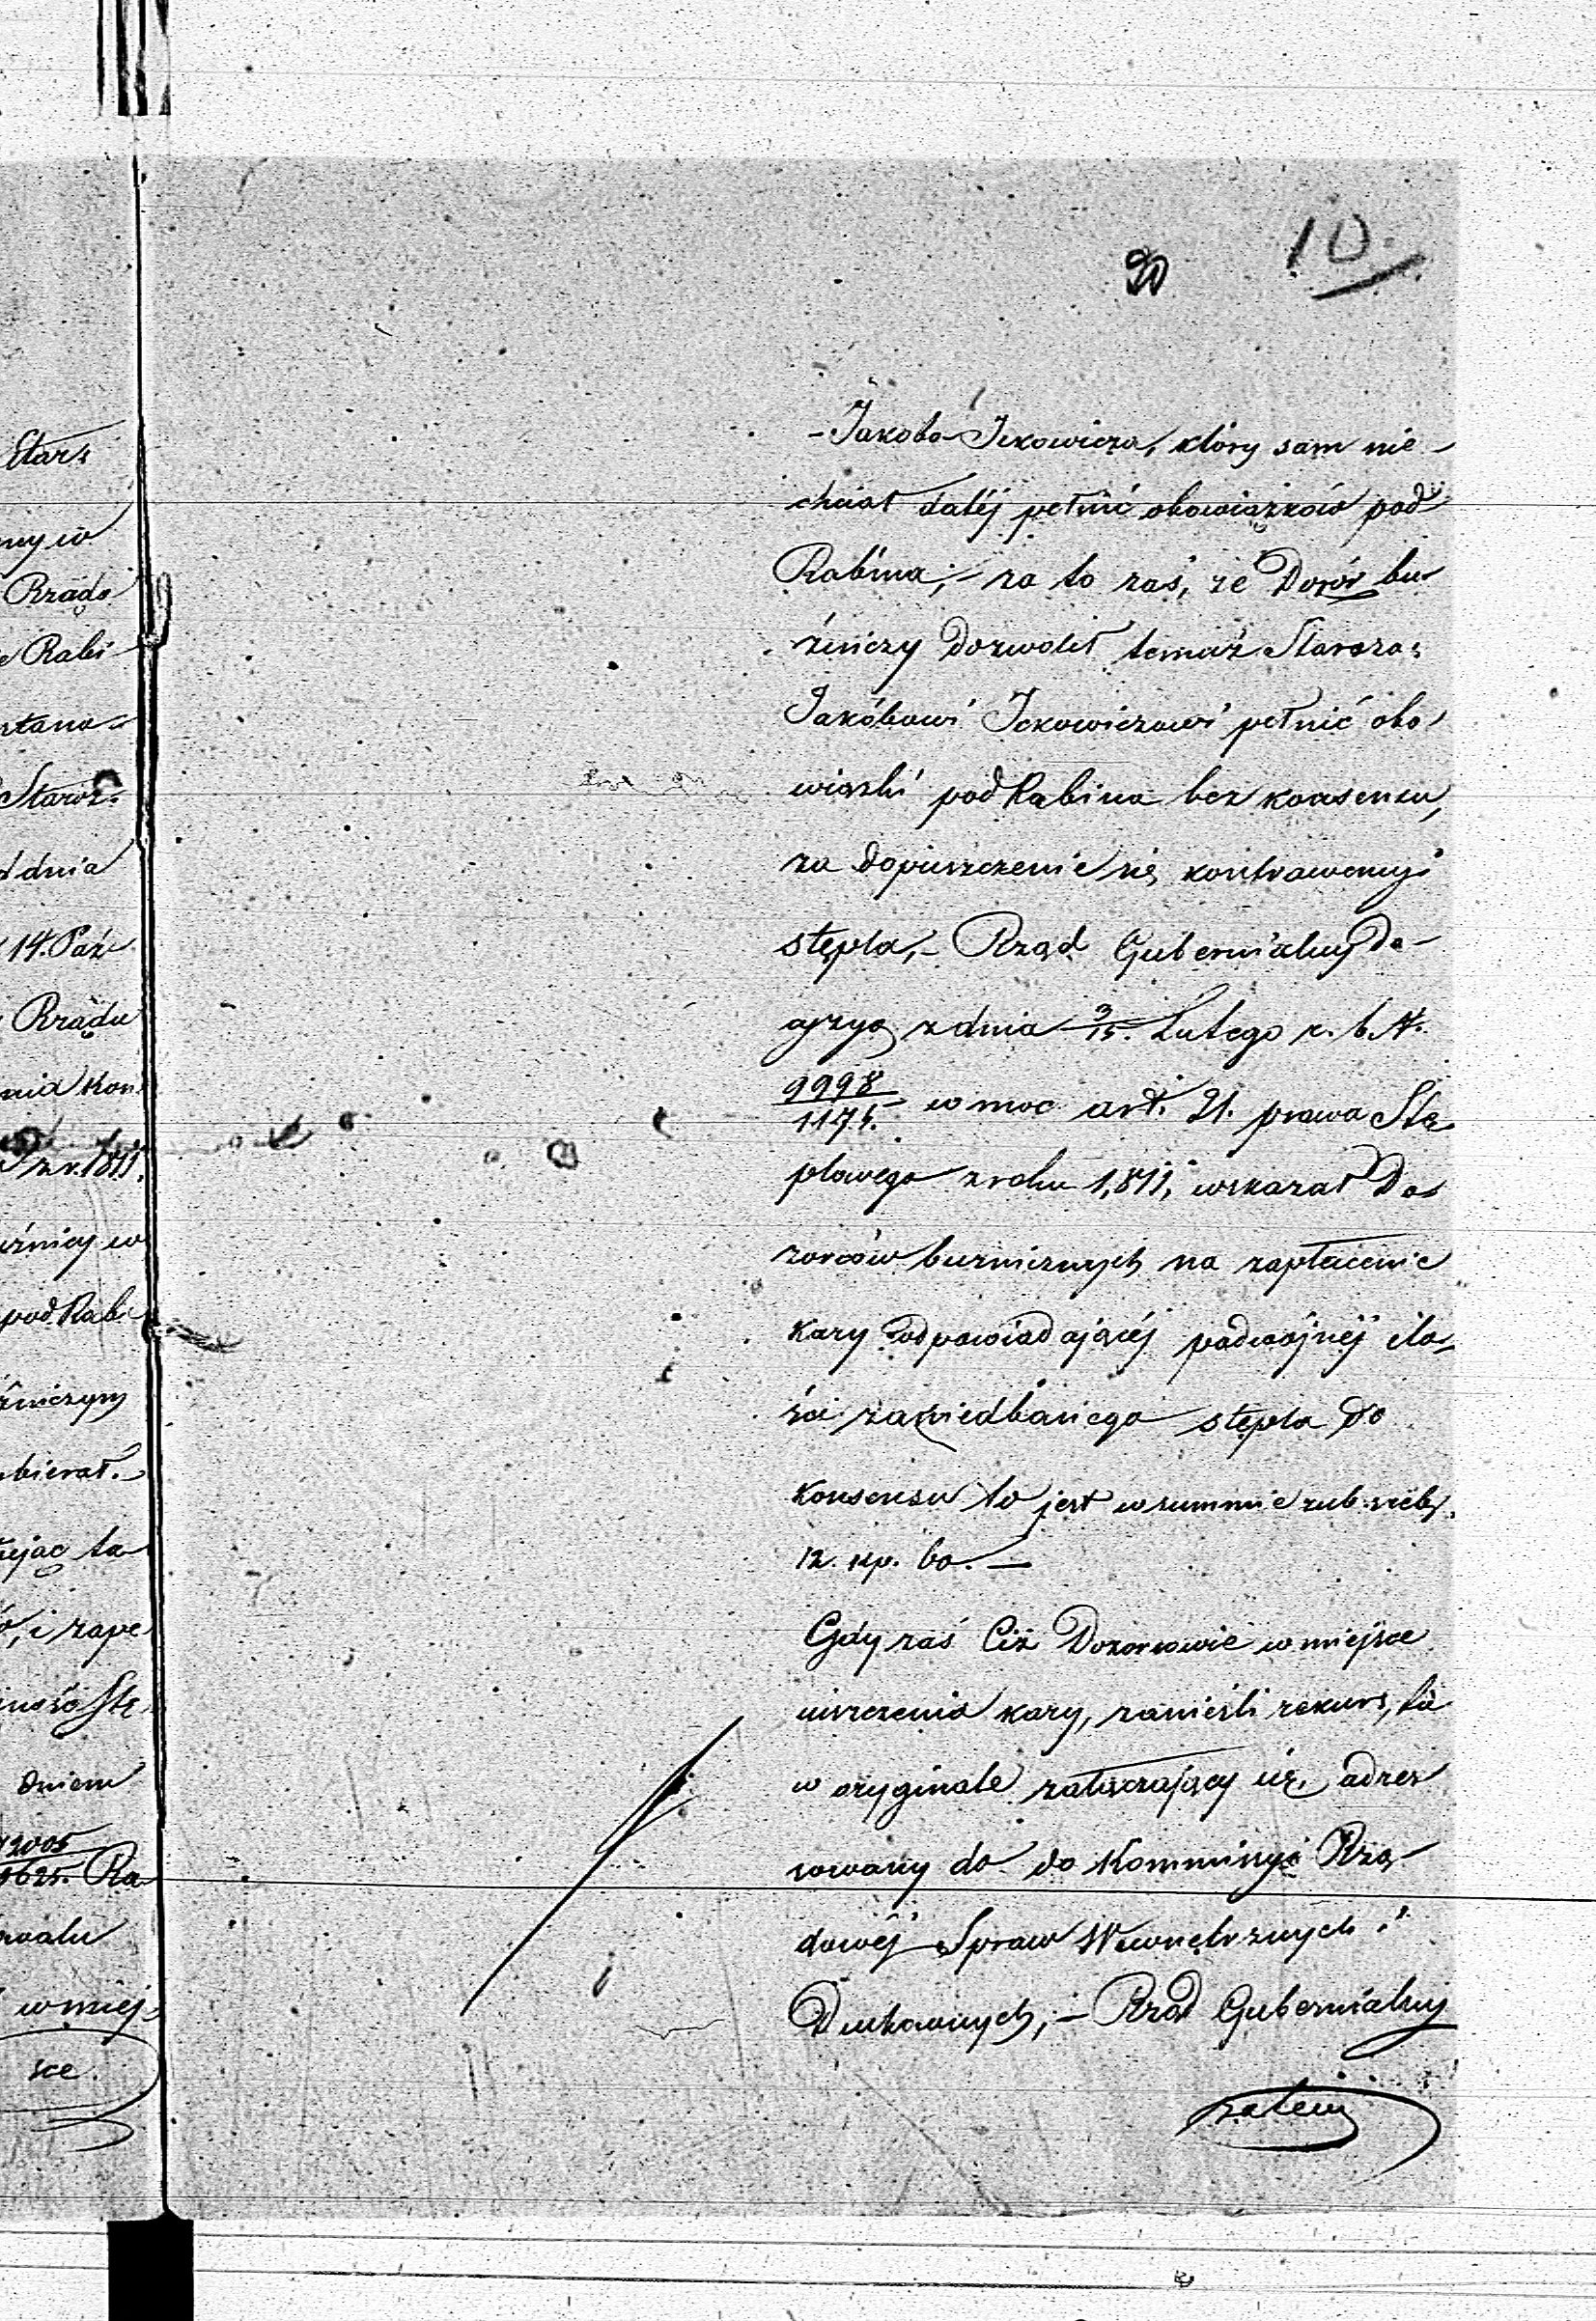 Stars
ny w
Rządo
e Rabi
Starsz.
dnia
14. Paź
Rządu
nia Kon
z r. 1811.
uźnicy w
pod Rab
źniczym
bierał.
ując ta
, i zape
dniem
12005
1625. Ra
w miej
sce.
10
20
- Jakoba Ickowicza, który sam nie -
chciał daléj pełnić obowiązków pod
Rabina; - za to zaś, że Dozór bu
żniczy dozwolił temuż Starsza:
Jakóbowi Ickowiczowi pełnić obo
wiązki podRabina bez konsensu,
za dopuszczenie się kontrawencyi
stępla, - Rząd Gubernialny De-
cyzyą z dnia 3/15. Lutego r. b. N.
9998/1174. w moc art. 21. prawa Stę
plowego z roku 1,811, wskazał Do
zorców bużnicznych na zapłacenie
kary odpowiadającéj podwójnéj ilo,
ści zaniedbanego stępla do
konsensu to jest w summie rub. sreb.
12. kp. 60. —
Gdy zaś Ciż Dozorcowie w miejsce
uiszczenia kary, zanieśli rekurs, tu
w oryginale załączający się, adres
sowany do do Kommissyi Rzą-
dowéj Spraw Wewnętrznych i
Duchownych, - Rząd Gubernialny
zatem